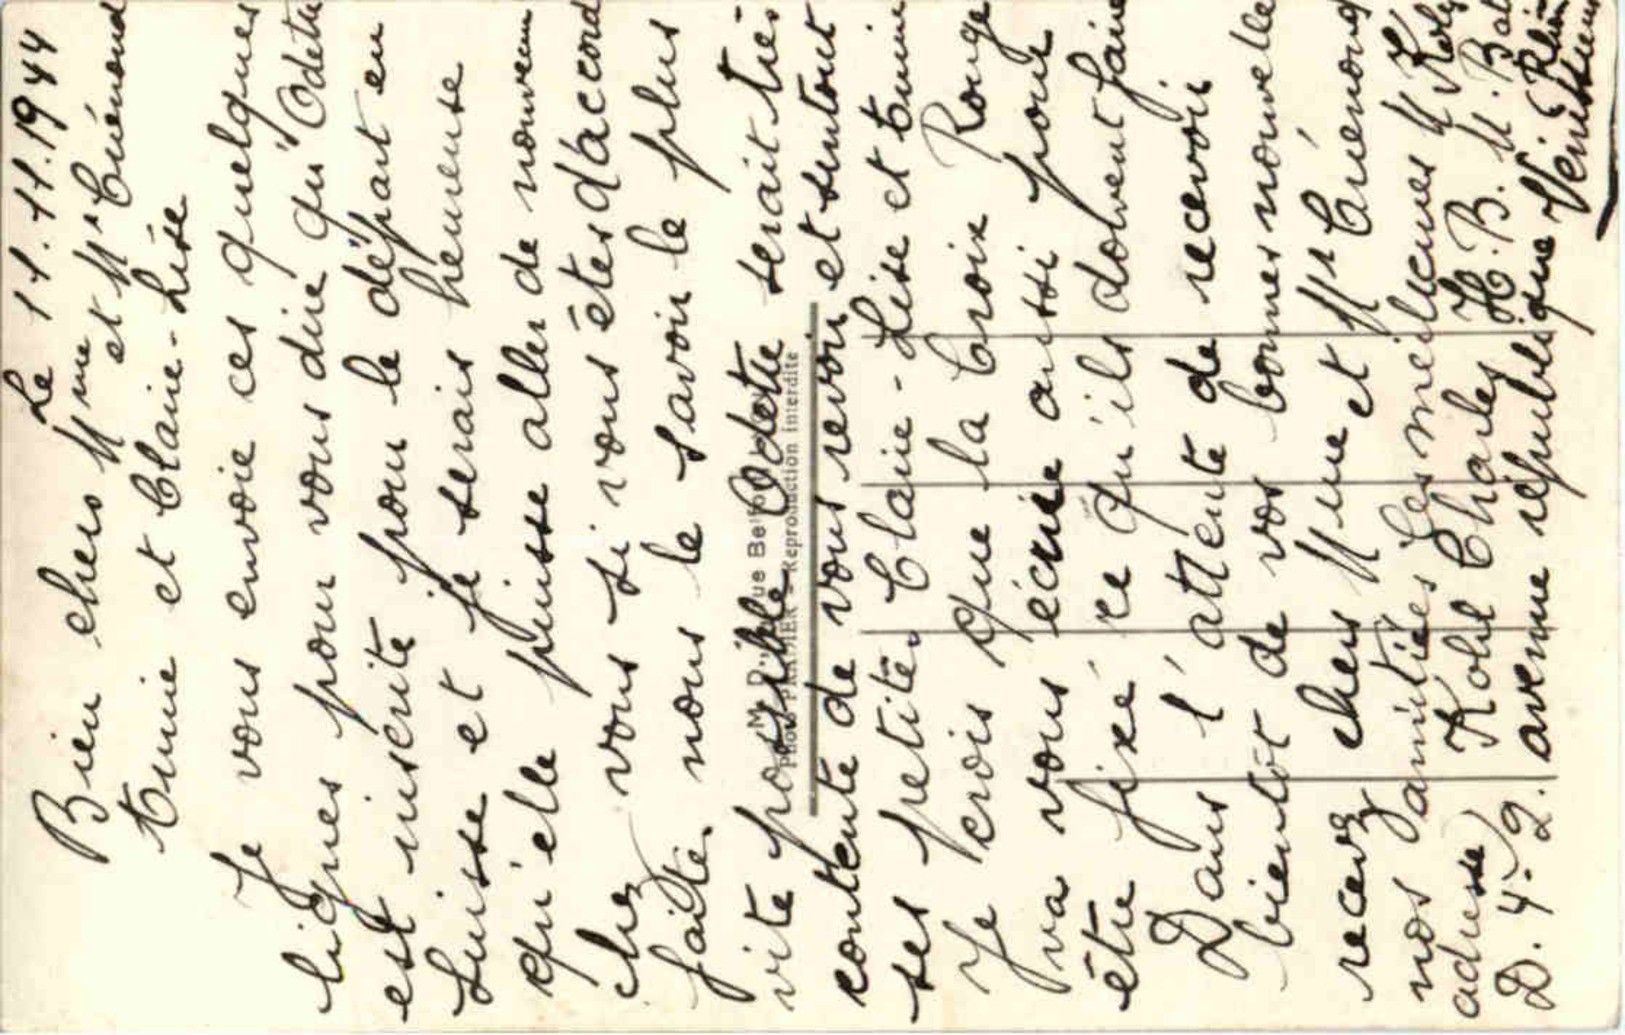 Le 11.11.1944
Bien chers Mme et Mr Cuénoud
Eunice et Claire-Lise
Je vous envoie ces quelques
lignes pour vous dire qu'Odette
est inscrite pour le départ en
Suisse et je serais heureuse
qu'elle puisse aller de nouveau
chez vous si vous êtes d'accord
faite nous le savoir le plus
vite possible Odette serait très
contente de vous revoir et surtout
ses petites Claire-Lise et Eunice
Je crois que la Croix Rouge
va vous écrire aussi pour
être fixé ce qu'ils doivent faire
Dans l'attente de recevoir
bientôt de vos bonnes nouvelle
recevez chers Mme et Mr Cuénoud
nos amitiés les meilleures
adresse Kohl Charles H.B.M. Bat
D.4.2. avenue république Vénissieux
(Rhône)
Reproduction Interdite